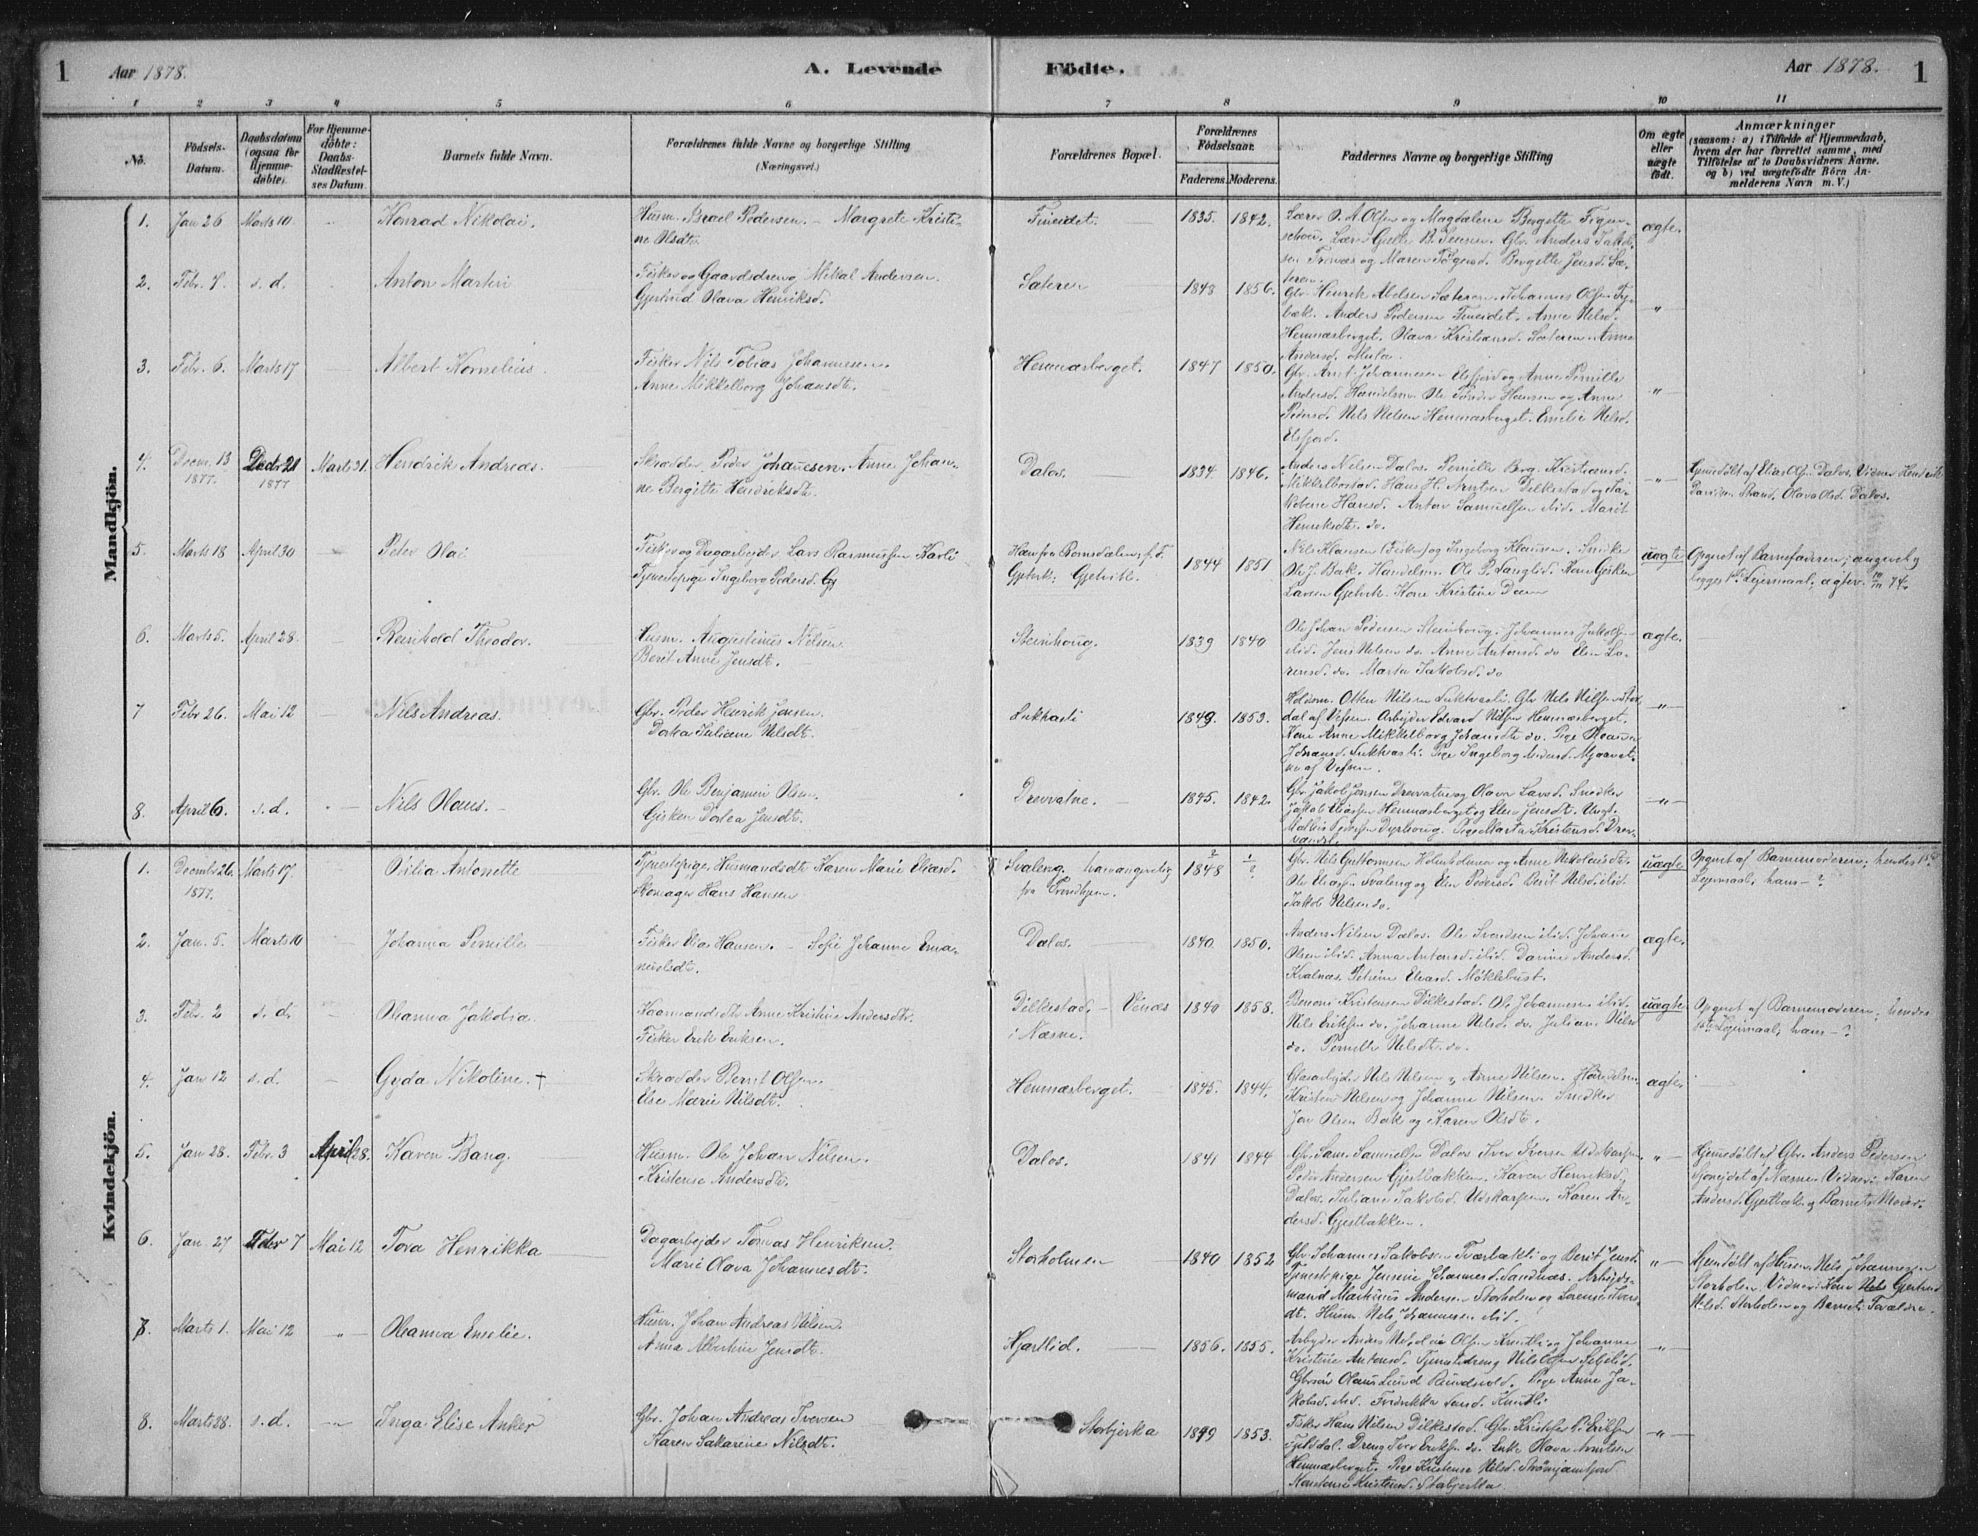 1 Aar 1878. A. Levende Födte. Aar 1878. 1
1 2 3 4 5 6 7 8 9 10 11
No. Födsels-Datum. Daabsdatum (ogsaa for Hjemme-döbte). For Hjemme-döbte: Daabs-Stadfæstel-ses Datum. Barnets fulde Navn. Forældrenes fulde Navne og borgerlige Stilling (Næringsvei.) Forældrenes Bopæl. Forældrenes Födselsaar. Faderens. Moderens. Faddernes Navne og borgerlige Stilling Om ægte eller uægte födt. Anmærkninger (saasom: a) i Tilfælde af Hjemmedaab, hvem der har forrettet samme, med Tilföielse af to Daabsvidners Navne. og b) ved uægtefödte Börn An-melderens Navn m. V.)
Mandkjön.
1. Jan 26 Marts 10 Konrad Nikolai. Husm. Israel Pedersen. – Margrete Kristi-
ne Olsdt. Fineidet. 1835. 1842. Lærer O. A. Olsen og Magdalena Bergette ægte.
2. Febr. 7 s. d. Anton Martin Fisker og Gaardsdreng Mikal Andersen.
Gjertrud Olava Henriksd. Sæteren 1848 1856. Gbr. Henrik Abelsen Sæteren. Johannes Olsen
Anders Pedersen Fineidet. Anne Nelsd.
Hemnæsberget. Olava Kristiansd. Sæteren Anne
Andersd. Mula. "
3. Febr. 6. Marts 17 Albert Kornelius Fisker Nils Tobias Johannesen.
Anne Mikkelborg Johansdt. Hemnæsberget. 1847 1850. Gbr. Arnt Johannesen Elsfjord og Anne Pernille
Andersd. Handelsm. Ole Peder Hansen og Anna
Pedersd. Nels Nelsen Hemnæsberget. Emelie Nelsd.
Elsfjord. "
4. Decm. 13 1877. Decbr 21 1877 Marts 31. Hendrik Andreas. Skrædder Peder Johanesen. Anne Johan-
ne Bergitte Hendriksdt. Dalos. 1834 1846. Anders Nelsen Dalos. Pernille Berg. Kristiansd.
Mikkelbostad. Hans H. Arntsen Dilkestad og Ja-
kobine Hansd. Anton Samuelsen ibid. Marit
Henriksdt. do. " Hjemdöbt af Elias Olsen Dalos. Vidner Hendrik
Davidsen Strand. Olava Olsd. Dalos.
5. Marts 18 April 30 Peter Olai Fisker og Dagarbejder Lars Rasmussen Karli
Tjenestepige Ingeborg Pedersd. Han fra Romsdalen, f. T.
Gjelvik. 1844 1851 Nils Klausen (Fisker) og Ingeborg Klausen. Snidker
Ole J. Bak. Handelsm. Ole P. Langlid. Kone Gjesken
Larsen Gjelvik. Kone Kristine Daem uægte Opgivet af Barnefaderen, angivelig
begges 1ste Lejermaal.
6. Marts 5. April 28. Reinhold Theodor. Husm. Augustinus Nilsen
Berit Anne Jensdt. Steinhaug. 1839 1840 Ole Johan Pedersen Steinhaug. Johannes Jakobsen
ibid. Jens Nelsen do. Anne Antonsd. do Elen La-
rensd. do. Marta Jakobsd. do ægte.
7 Febr 26. Mai 12 Nils Andreas. Gbr. Peder Henrik Jensen.
Dorka Juliane Nilsdt. Lukhasli 1849. 1853. Otter Nilsen Lukhasli. Gbr Nels Nilsen
dal af Vefsen. Arbejder Edvard Nilsen Hemnæsberget.
Kone Anne Mikkelborg Johansdt. do. Pige
Johansd. Lukhasli. Pige Ingeborg
af Vefsen. "
8. April 6. s. d. Nils Olaus. Gbr. Ole Benjamin Olsen.
Gisken Dorlea Jensdt. Drevvatne. 1845. 1842. Gbr. Jakob Jensen Drevvatne og Olava Larsd. Snedker
Jakob Eliassen Hemnæsberget og Elen Jensdt. Ungk.
Dyrhaug. Pige Marta Kristensd. Drev-
vandet. "
Kvindekjön.
1. Decmbr 26. 1877. Marts 17. Otilia Antonette Tjenestepige, Husmandsdt Karen Marie Eliasd.
Skomager Hans Hansen Svaleng. han angivelig
fra Trondhjem. ? 1848 ? Gbr. Nils Guttormsen Holmholmen og Anne Nikolausdt.
Ole Eliassen Svaleng og Elen Pedersd. Berit Nelsd. ibid.
Jakob Nelsen do. uægte Opgivet af Barnemoderen; hendes 1ste
Lejermaal, hans – ?
2. Jan. 5. Marts 10 Johanna Pernille Fisker Elias Hansen. – Sofie Johanne Ema-
nuelsdt. Dalos. 1840. 1850. Anders Nilsen Dalos. Ole Svendsen ibid. Johan
Olsen ibid. Anna Antonsd. ibid. Dorine Andersd.
Kvalnes. Petrine Elvard. Möklebust. ægte.
3. Febr. 2 s. d. Olianna Jakobia. Husmandsdt. Anne Kristine Andersdt.
Fisker Erik Eriksen. Dilkestad. – Vinæs
i Næsne. 1840 1858. Benoni Kristensen Dilkestad. Ole Johannesen ibid.
Nils Eriksen do. Johanne Nelsd. do. Juliane Nelsd
do. Pernille Nelsdt. do. uægte Opgivet af Barnemoderen; hendes
1ste Lejermaal, hans – ?
4. Jan 12 s. d. Gyda Nikoline. + Skrædder Bernt Olsen.
Else Marie Nilsdt. Hemnæsberget. 1845. 1844. Glasarbejder Nils Nelsen og Anne Nilsen. Handelsm.
Kristian Nelsen og Johanna Nilsen. Snedker
Jon Olsen Bak og Karen Olsdt. ægte
5. Jan 28. Febr. 3 April 28. Karen Bang. Husm. Ole Johan Nilsen.
Kristense Andersdt. Dalos. 1841 1844 Gbr. Sam. Samuelsen Dalos Iver Iversen Utskarpen.
Peder Andersen Gjestbakken. Karen Henriksd.
Dalos. Juliane Jakobsd. Utskarpen. Karen An-
dersd. Gjestbakken. " Hjemdöbt af Gbr. Anders Pedersen
af Næsne. Vidner: Karen
Andersd. Gjestbak. og Barnets Moder.
6. Jan 27 Febr 7 Mai 12 Tora Henrikka Dagarbejder Tomas Henriksen.
Marie Olava Johannesdt. Storholmen 1840 1852 Gbr. Johannes Jakobsen Tværbakli og Berit Jensd.
Tjenestepige Jensine Johannesd. Sandnæs. Arbejds-
mand Markinus Andersen Storholm og Lorense Iver-
dt. Husm. Nels Johannesen ibid. " Hjemdöbt af Husm. Nels Johannesen
Storholm. Vidner: Kone Gjertrud
Nelsd. Storholm og Barnets Forældre.
7. Marts 1. Mai 12 " Olianna Emelie. Husm. Johan Andreas Nilsen.
Anna Albertine Jensdt. Hjartlid. 1856. 1855. Arbejder Anders Nikolai Olsen Kvitli og Johanna
Kristine Antonsd. Tjenestedreng Nils Olsen Seljelid.
Gbrsön Olaus Lund Rundvold. Pige Anne Ja-
kobsd. ibid. Fredrikke Kvitli "
8. Marts 28. s. d. " Inga Elise Anker Gbr. Johan Andreas Iversen
Karen Sakarine Nilsdt. Storbjerka 1849 1853. Fisker Hans Nilsen Dilkestad. Gbr. Kristofer P. Eriksen
Dreng Iver Eriksen do. Enke Olava Arntsen
Hemnæsberget. Pige Kristense Nelsd.
Konstanse Kristensd. Storbjerka "